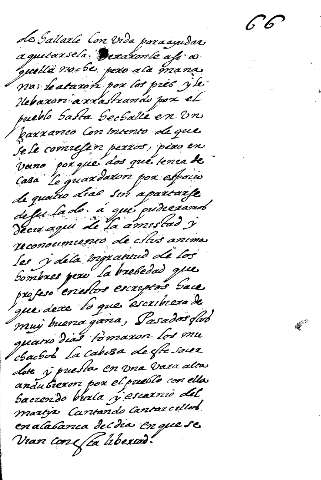 66
de hallarle con vida para ayudar
a quitarsela. Dexaronle assi a
quella noche, pero a la maña
na le ataron por los pies y le
llebaron arrastrando por el
pueblo hasta hechalle en un
barranco con intento de que
se le comiessen perros, pero en
vano porque dos que tenia de
casa lo guardaron por espacio
de quatro dias sin apartarse
de su lado. a que pudieramos
decir aqui de la amistad y
reconocimiento de estos anima
les y de la ingratitud de los
hombres pero la brebedad que
profeso en estos escriptos hace
que dexe lo que escribiera de
muy buena gana, Pasados estos
quatro dias tomaron los mu
chachos la cabeza de este sacer
dote y puesta en una vara alta
andubieron por el pueblo con ella
haciendo burla y escarnio del
martyr cantando cantarcillos
en alabanza del dia en que se
vian con esta libertad.